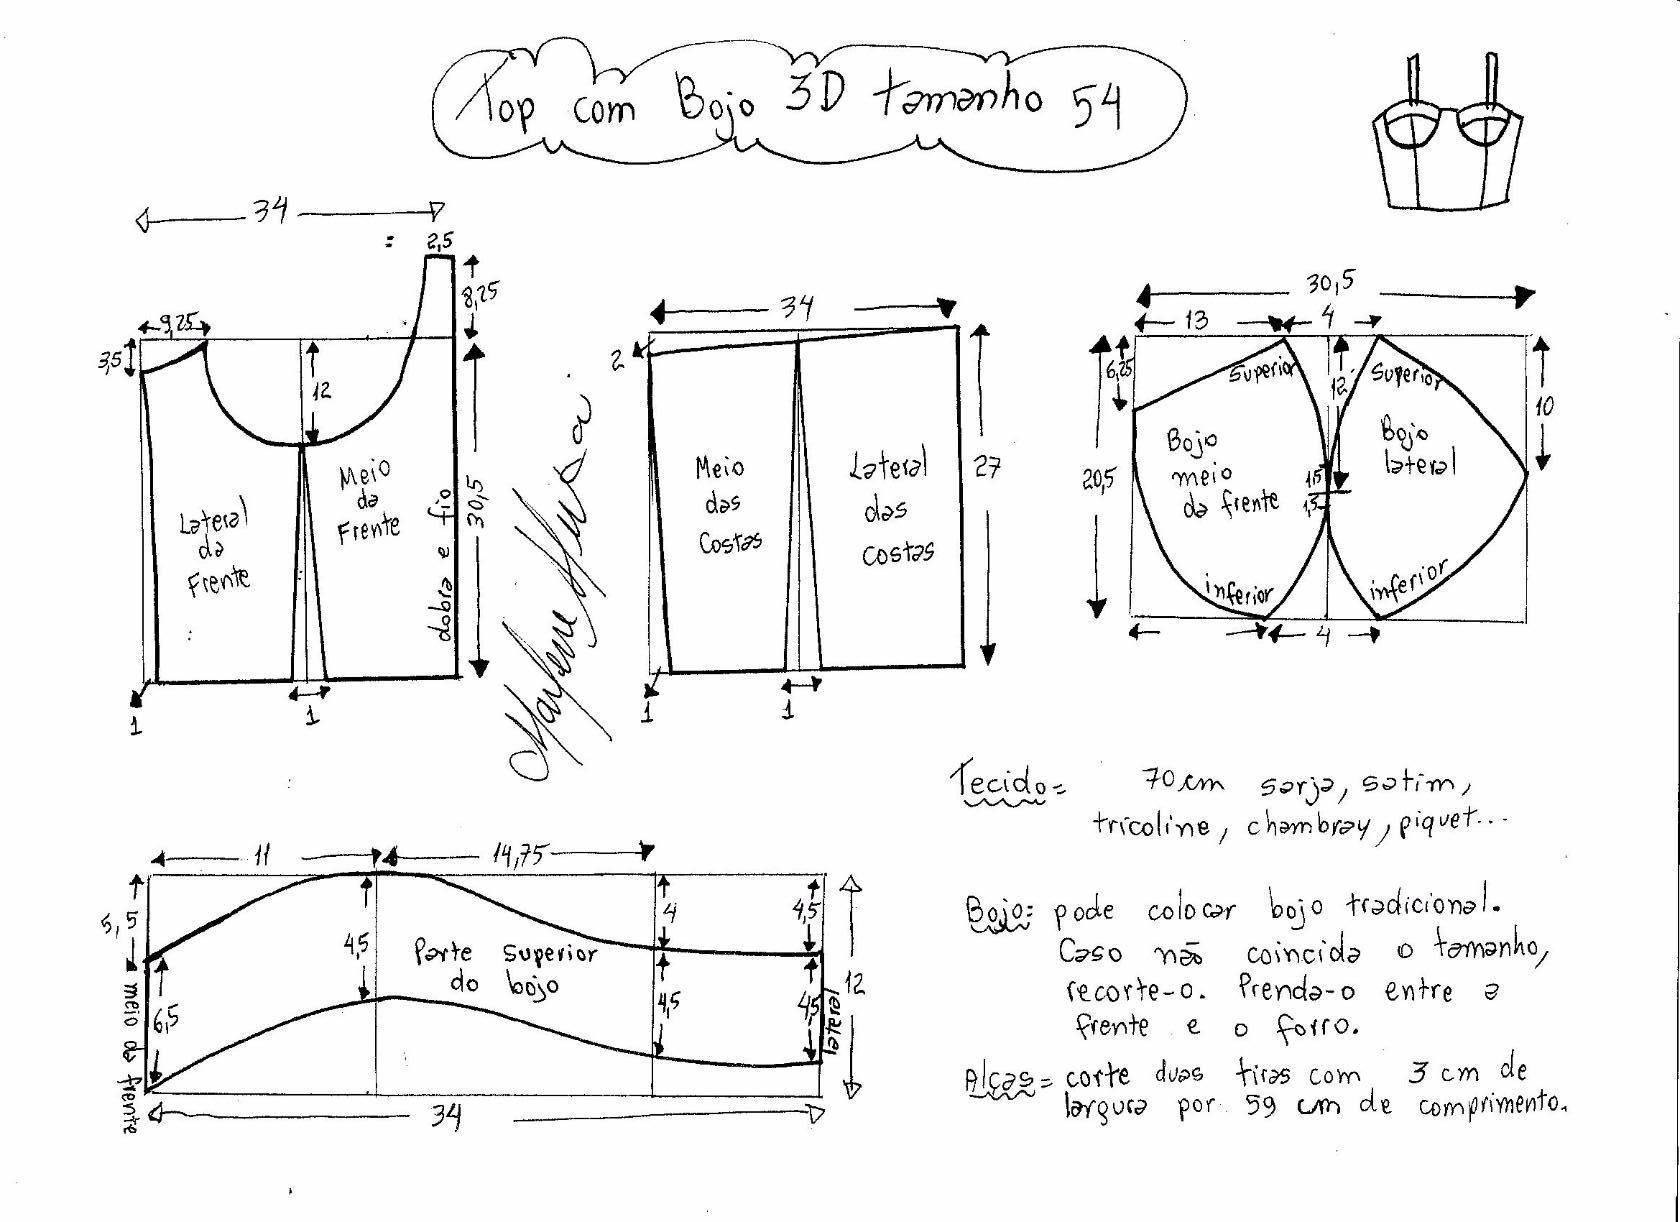 Top com Bojo 3D tamanho 54
34
2,5
8,25
9,25
3,5
12
Lateral
da
Frente
Meio
da
Frente
dobra e fio
30,5
1
1
Marlene Mukai
34
2
Meio
das
Costas
Lateral
das
costas
27
1
1
30,5
13
4
6,25
Superior
12
Superior
10
20,5
Bojo
meio
da frente
Bojo
lateral
1,5
1,5
inferior
inferior
4
11
14,75
5,5
4,5
4
4,5
Parte Superior
do bojo
6,5
4,5
4,5
12
meio da frente
lateral
34
Tecido= 70cm sarja, satim,
tricoline, chambray, piquet...
Bojo: pode colocar bojo tradicional.
Caso não coincida o tamanho,
recorte-o. Prenda-o entre a
frente e o forro.
Alças= corte duas tiras com 3 cm de
largura por 59 cm de comprimento.